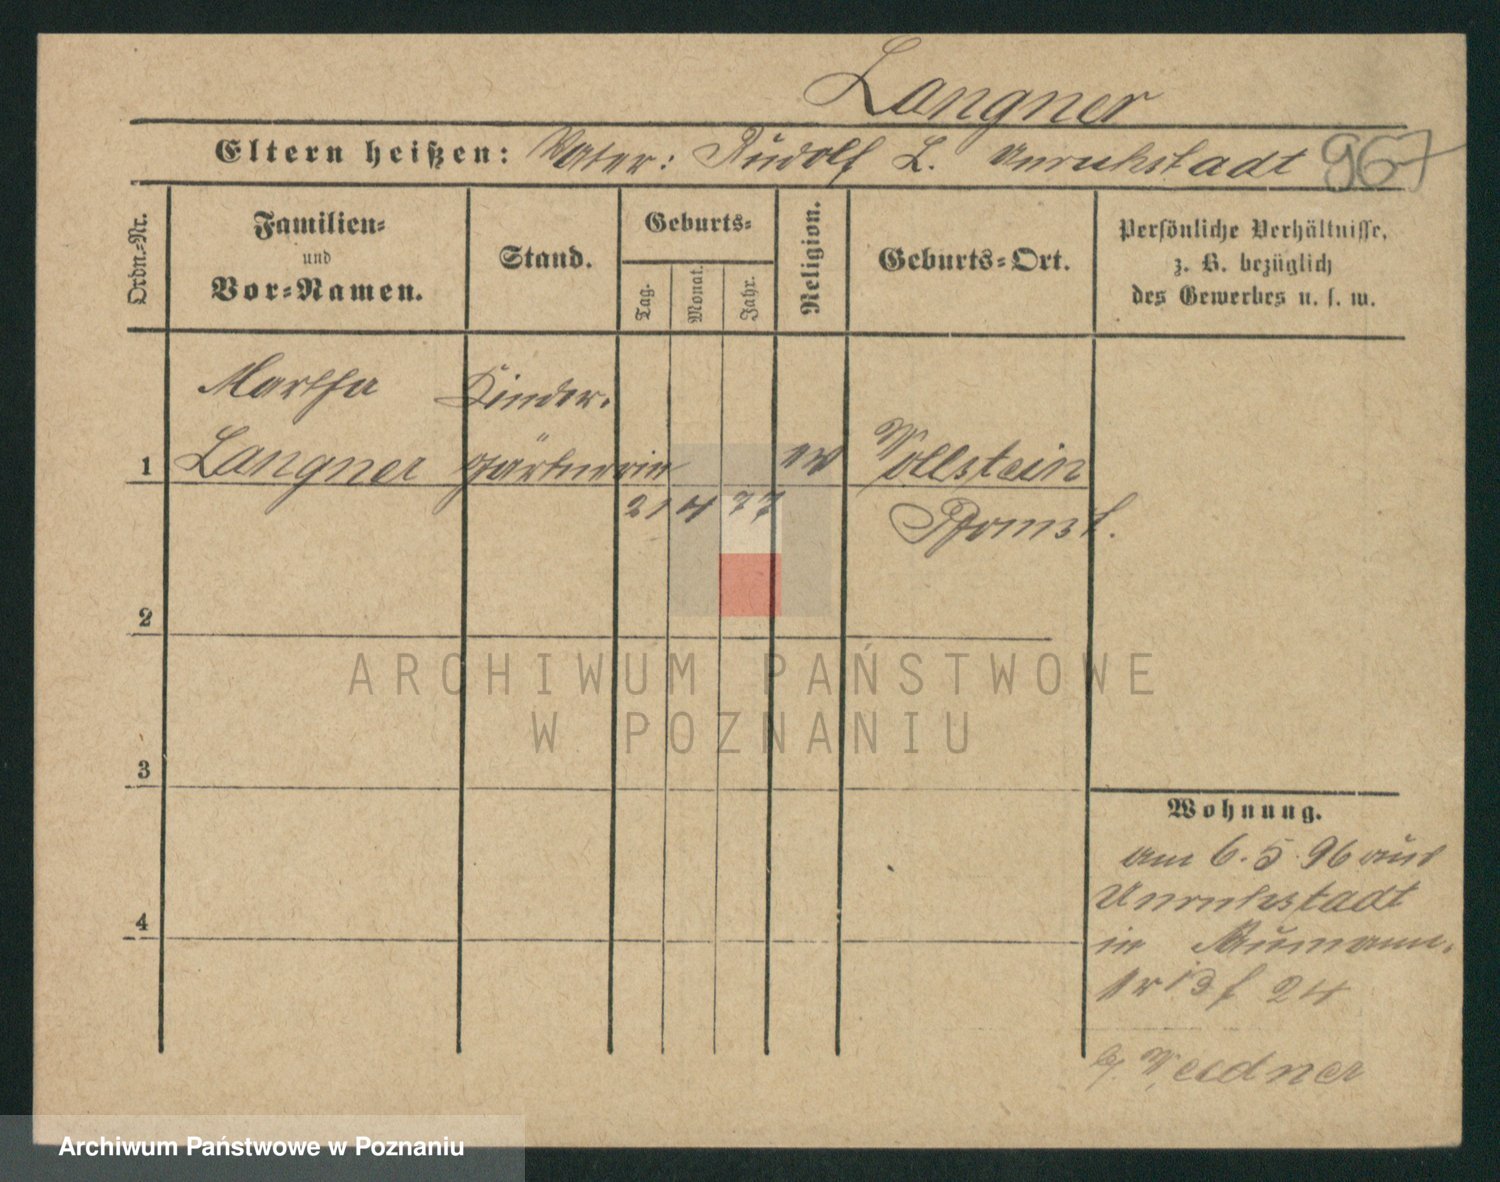 Langner
Eltern heißen: Vater: Rudolf L. Unruhstadt 967
Ordn.-Nr.
Familien-
und
Vor-Namen.
Stand.
Geburts-
Tag.
Monat.
Jahr.
Religion.
Geburts-Ort.
Persönliche Verhältnisse,
z. B. bezüglich
des Gewerbes u. s. w.
Martha
Langner
Kinder-
gärtnerin
21 4 77
Wollstein
Bomst.
1
2
3
4
Wohnung.
am 6.5.96 aus
Unruhstadt
in
24
Weidner
ARCHIWUM PAŃSTWOWE
W POZNANIU
Archiwum Państwowe w Poznaniu